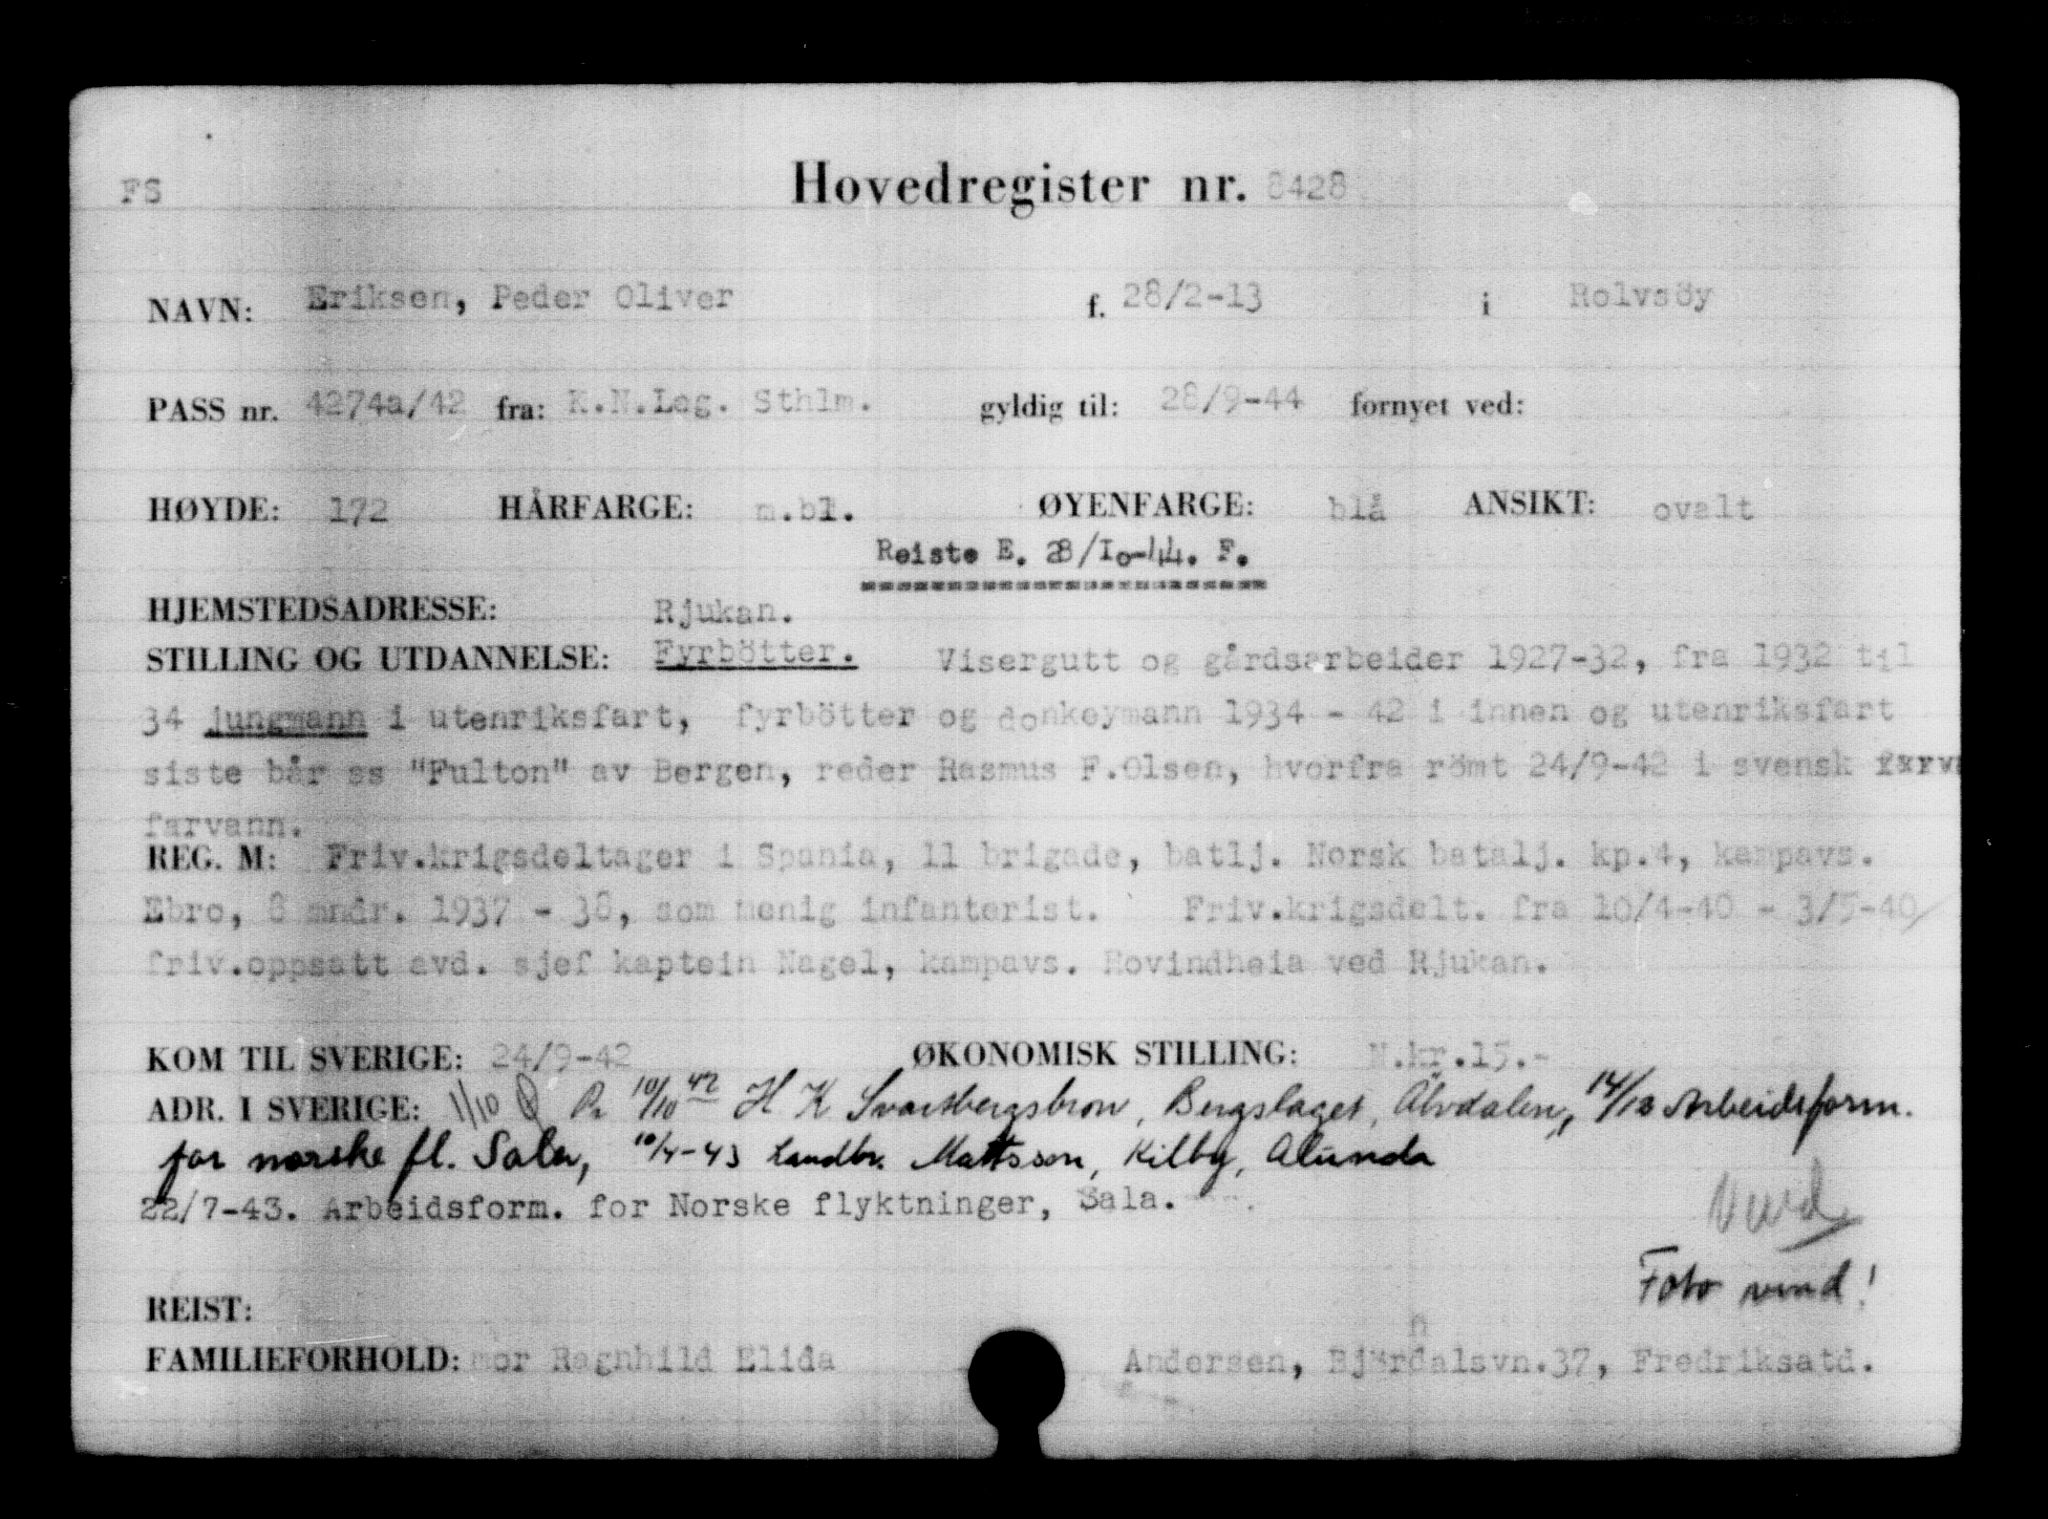 FS
Hovedregister nr. 8428
NAVN: Eriksen, Peder Oliver f. 28/2-13 i Rolvsöy
PASS nr. 4274a/42 fra: K.N.Leg. Sthlm. gyldig til: 28/9-44 fornyet ved:
HØYDE: 172 HÅRFARGE: m.bl. ØYENFARGE: blå ANSIKT: ovalt
Reiste E. 28/Io-44. F.
HJEMSTEDSADRESSE: Rjukan.
STILLING OG UTDANNELSE: Fyrbötter. Visergutt og gårdsarbeider 1927-32, fra 1932 til
34 jungmann i utenriksfart, fyrbötter og donkeymann 1934 - 42 i innen og utenriksfart
siste bår ss "Fulton" av Bergen, reder Rasmus F.Olsen, hvorfra römt 24/9-42 i svensk
farvann.
REG. M: Friv.krigsdeltager i Spania, 11 brigade, batlj. Norsk batalj. kp.4, kampavs.
Ebro, 8 mndr. 1937 - 38, som menig infanterist. Friv.krigsdelt. fra 10/4-40 - 3/5-40
friv.oppsatt avd. sjef kaptein Nagel, kampavs. Hovindheia ved Rjukan.
KOM TIL SVERIGE: 24/9-42 ØKONOMISK STILLING: N.kr.15.-
ADR. I SVERIGE: 1/10 10/10 42 H K Svartbergsbron, Bergslaget, Älvdalen, 14/12 Arbeidsform.
for norske fl. Sala, 10/4-43 Landbr. Mattsson, Kilby, Alunda
22/7-43. Arbeidsform. for Norske flyktninger, Sala.
Vend
Foto vend!
REIST:
FAMILIEFORHOLD: mor Ragnhild Elida Andersen, Bjørndalsvn.37, Fredriksatd.